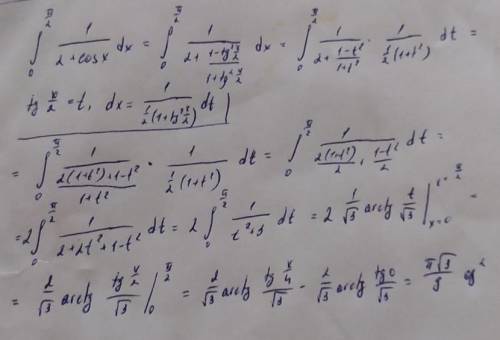 ∫₀^{π/2} 1/(2+cosx) dx = ∫₀^{π/2} 1/(2+(1-tg²x/2)/(1+tg²x/2)) dx = ∫₀^{π/2} 1/(2+(1-t²)/(1+t²)) · 1/(½(1+t²)) dt =
tg x/2 = t, dx = 1/(½(1+tg²x/2)) dt
= ∫₀^{π/2} 1/((2(1+t²)+1-t²)/(1+t²)) · 1/(½(1+t²)) dt = ∫₀^{π/2} 1/(2(1+t²)/2 + (1-t²)/2) dt =
= 2∫₀^{π/2} 1/(2+2t²+1-t²) dt = 2∫₀^{π/2} 1/(t²+3) dt = 2 1/√3 arctg t/√3 |_{x=0}^{x=π/2} =
= 2/√3 arctg (tg x/2)/√3 |₀^{π/2} = 2/√3 arctg (tg π/4)/√3 - 2/√3 arctg (tg0)/√3 = π√3/9